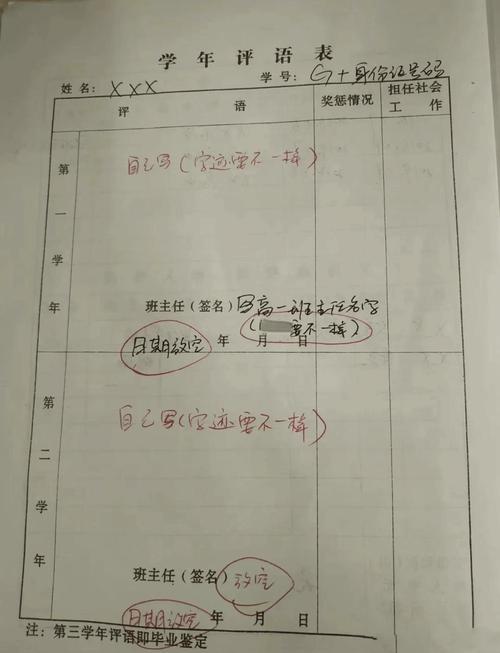 学年评语表
姓名：XXX 学号：G+身份证号码
评语 奖惩情况 担任社会工作
第一学年
自己写(字迹要不一样)
班主任（签名）因高一班主任名字
(要不一样)
日期放空 年 月 日
第二学年
自己写(字迹要不一样)
班主任（签名）放空
日期放空 年 月 日
注：第三学年评语即毕业鉴定